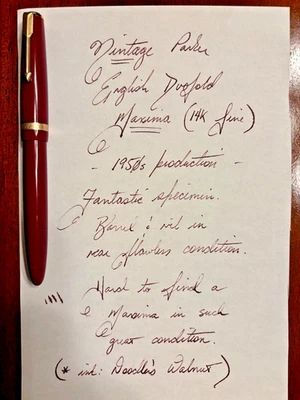 Vintage Parker
English Duofold
Maxima (14K fine)
- 1950s production -
Fantastic specimen.
Barrel & nib in
near flawless condition.
Hard to find a
Maxima in such
great condition.
(* ink: Doodles Walnut)